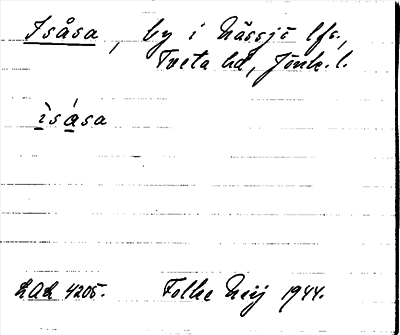 Isåsa, by i Nässjö lfs.,
Tveta hd, Jönk. l.
ìsása
LAL 4205. Folke Meij 1944.